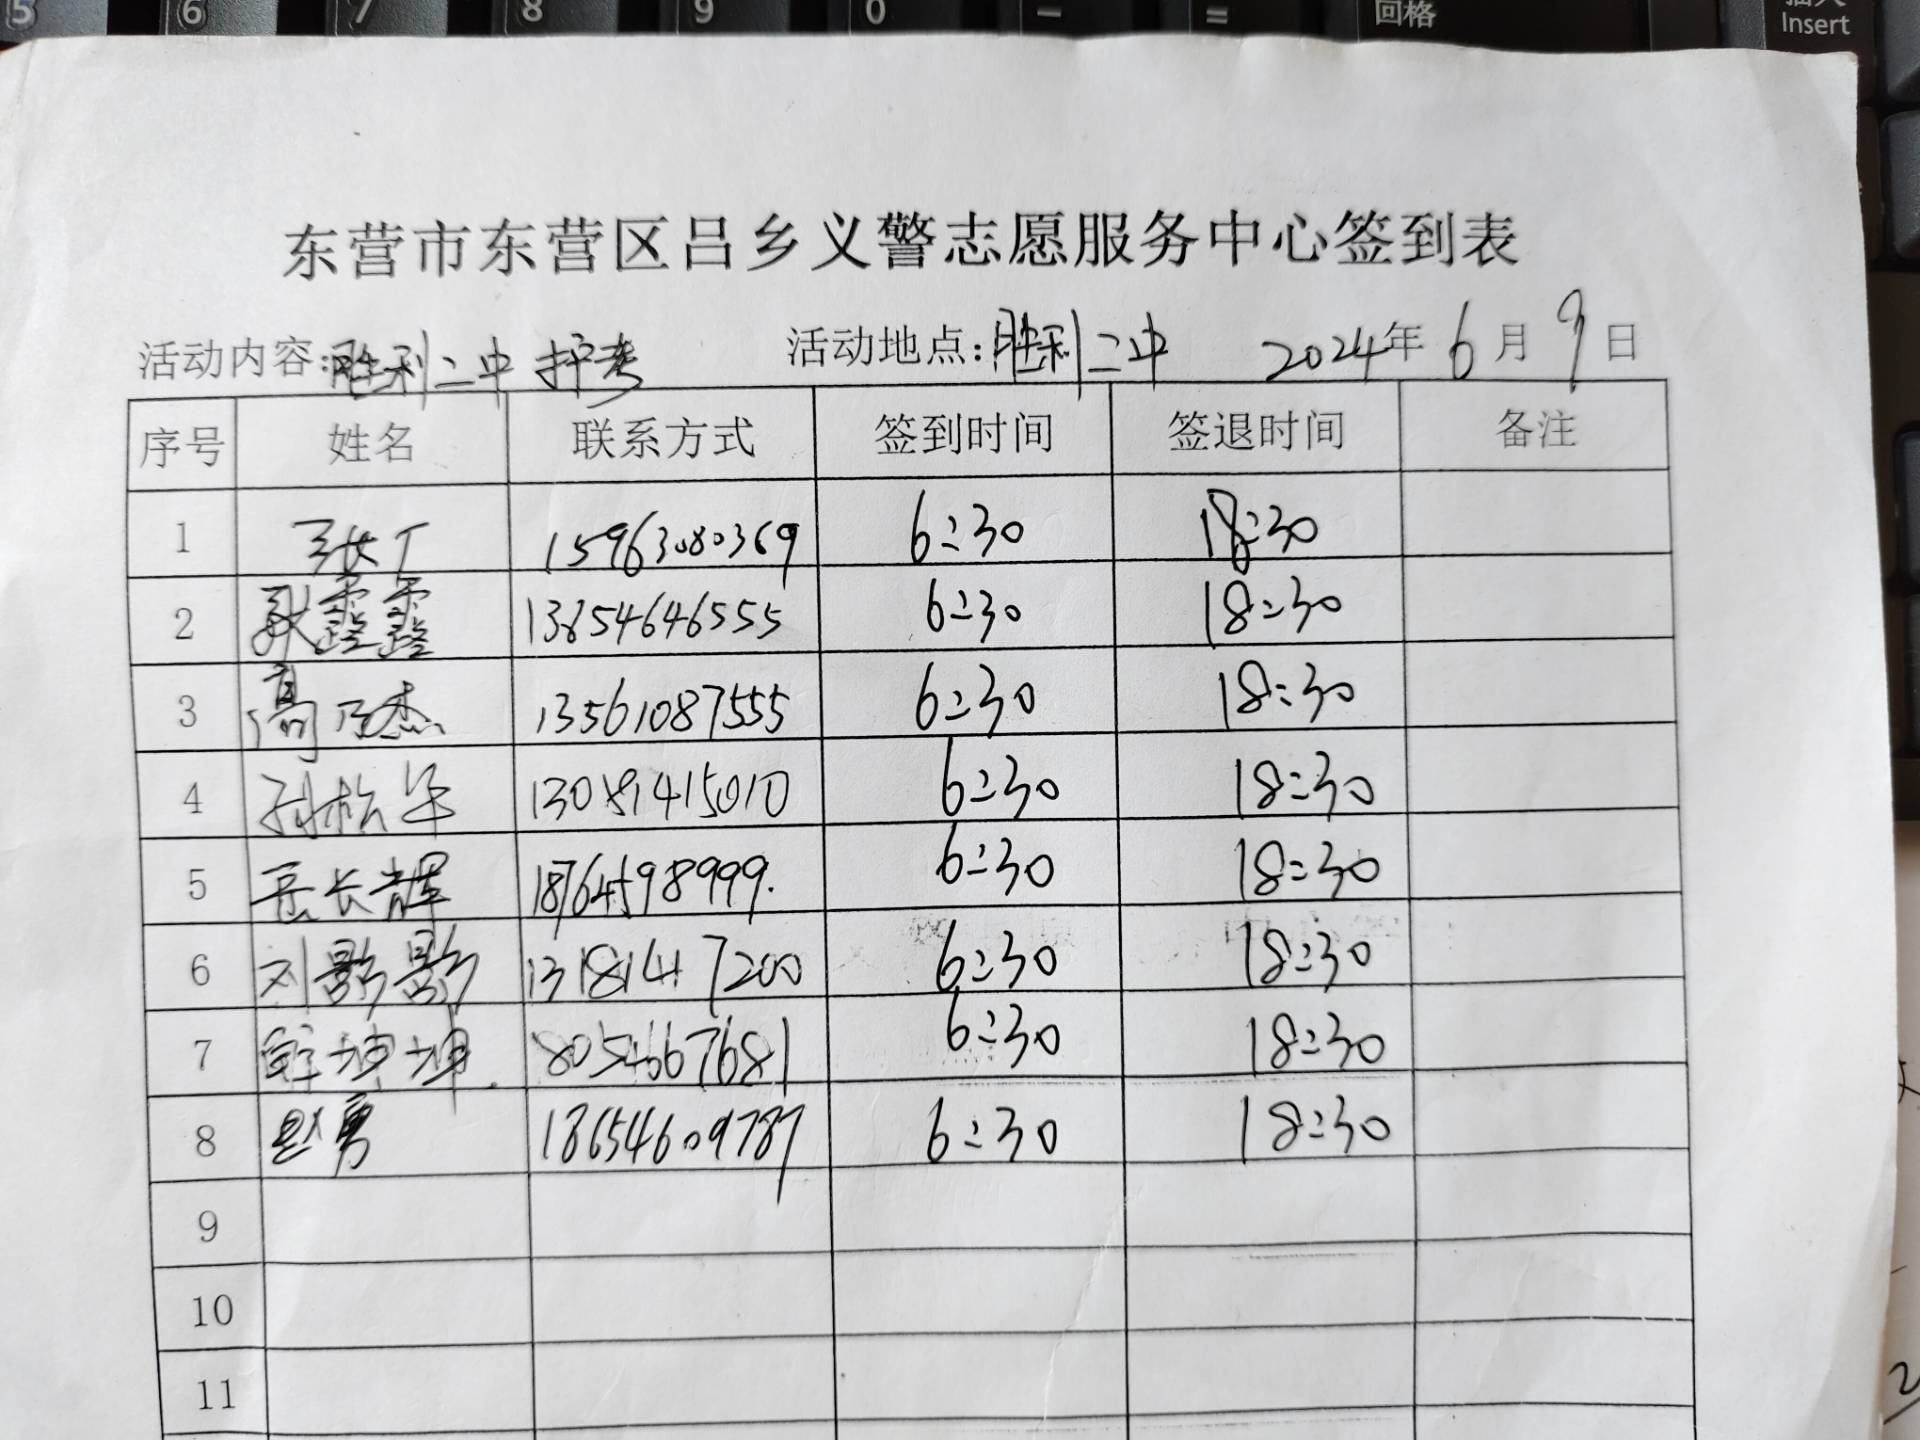 5 6 7 8 9 0 - = 回格 Insert
东营市东营区吕乡义警志愿服务中心签到表
活动内容:胜利二中 护考 活动地点:胜利二中 2024年 6月 9日
序号 姓名 联系方式 签到时间 签退时间 备注
1 张丁 15963080369 6:30 18:30
2 13654646555 6:30 18:30
3 高乃杰 13561087555 6:30 18:30
4 孙松华 6:30 18:30
5 岳长辉 18764598999. 6:30 18:30
6 刘影影 13181417200 6:30 18:30
7 6:30 18:30
8 赵勇 6:30 18:30
9
10
11